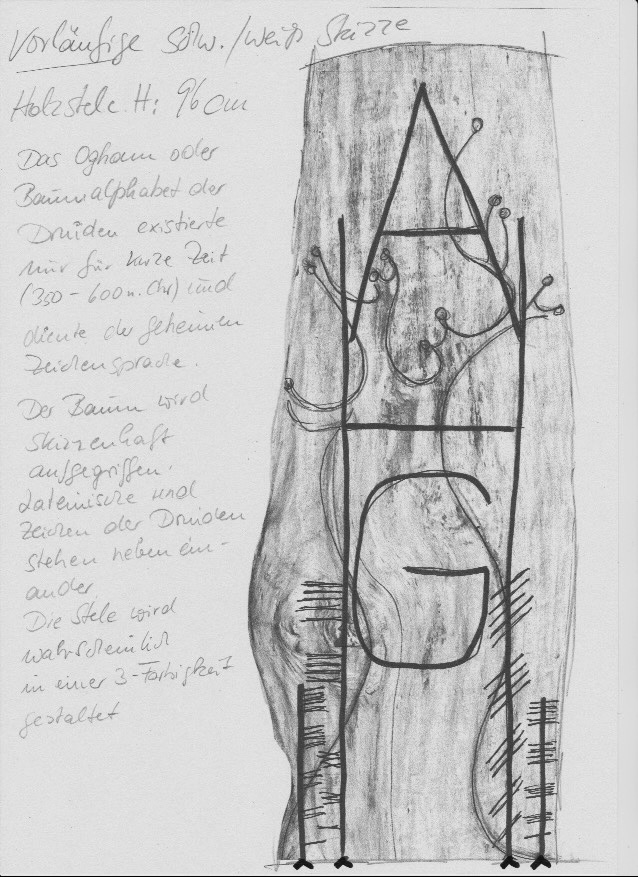 Vorläufige schw./weiß Skizze
Holzstele H: 96 cm
Das Ogham oder
Baumalphabet der
Druiden existierte
nur für kurze Zeit
(350-600 n. Chr) und
diente der geheimen
Zeichensprache.
Der Baum wird
skizzenhaft
aufgegriffen.
Lateinische und
Zeichen der Druiden
stehen neben ein-
ander.
Die Stele wird
wahrscheinlich
in einer 3-Farbigkeit
gestaltet
A
H
G